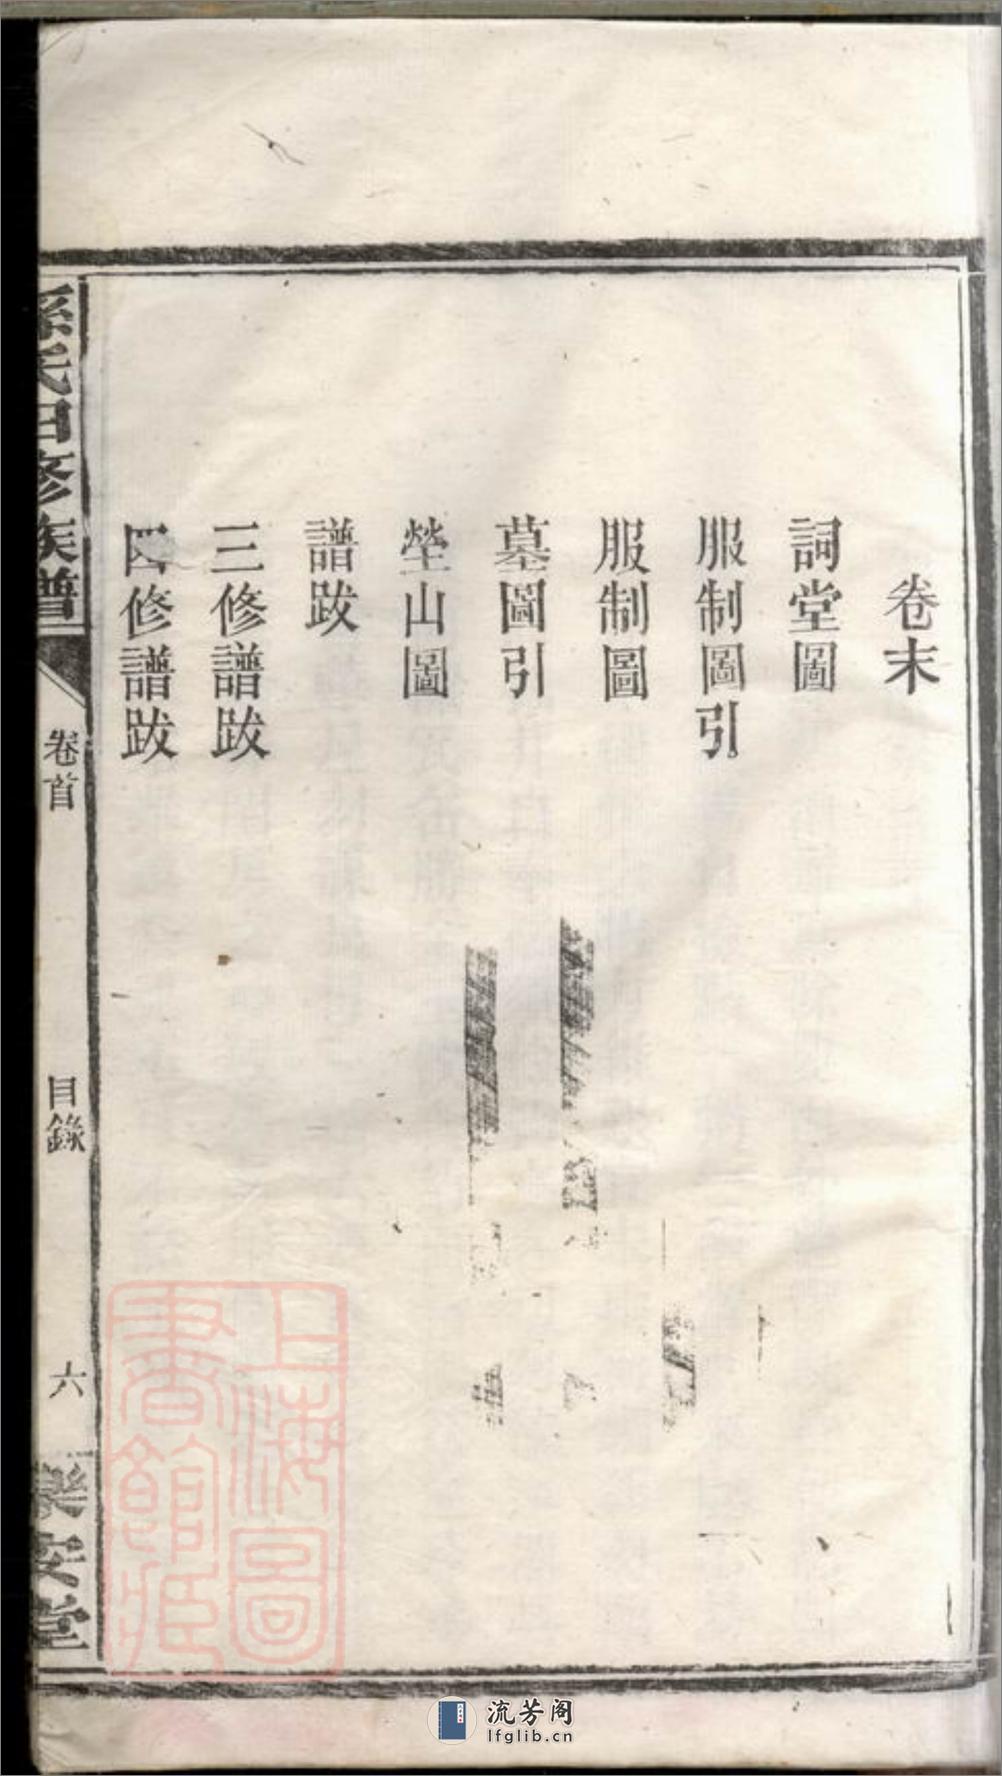 卷末
詞堂圖
服制圖引
服制圖
墓圖引
塋山圖
譜跋
三修譜跋
四修譜跋
孫氏四修族譜
卷首
目錄
六
樂安堂
上海圖
書館藏
流芳阁
lfglib.cn